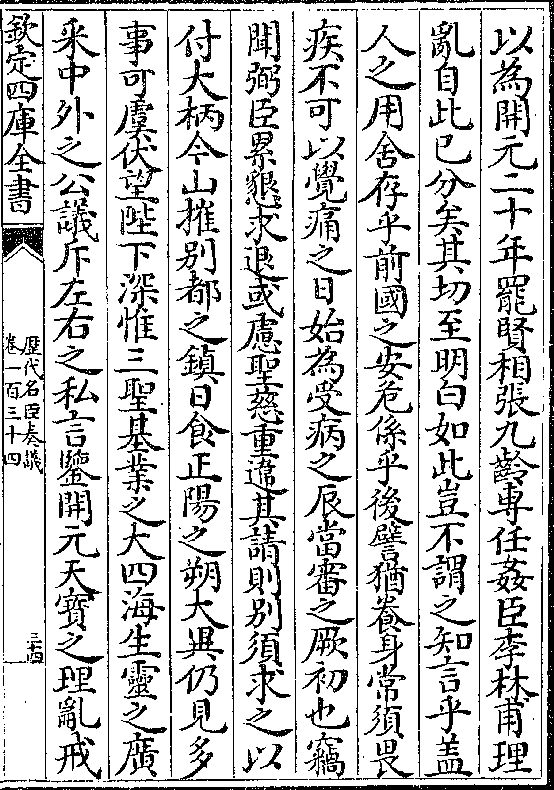 以為開元二十年罷賢相張九齡專任姦臣李林甫理
亂自此已分矣其切至明白如此豈不謂之知言乎蓋
人之用舍存乎前國之安危係乎後譬猶養身常須畏
疾不可以覺痛之日始為受病之辰當審之厥初也竊
聞弼臣累懇求退或慮聖慈重違其請則別須求之以
付大柄今山摧別都之鎮日食正陽之朔大異仍見多
事可虞伏望陛下深惟三聖基業之大四海生靈之廣
采中外之公議斥左右之私言鑒開元天寶之理亂戒
欽定四庫全書
歷代名臣奏議
卷一百三十四
三十四